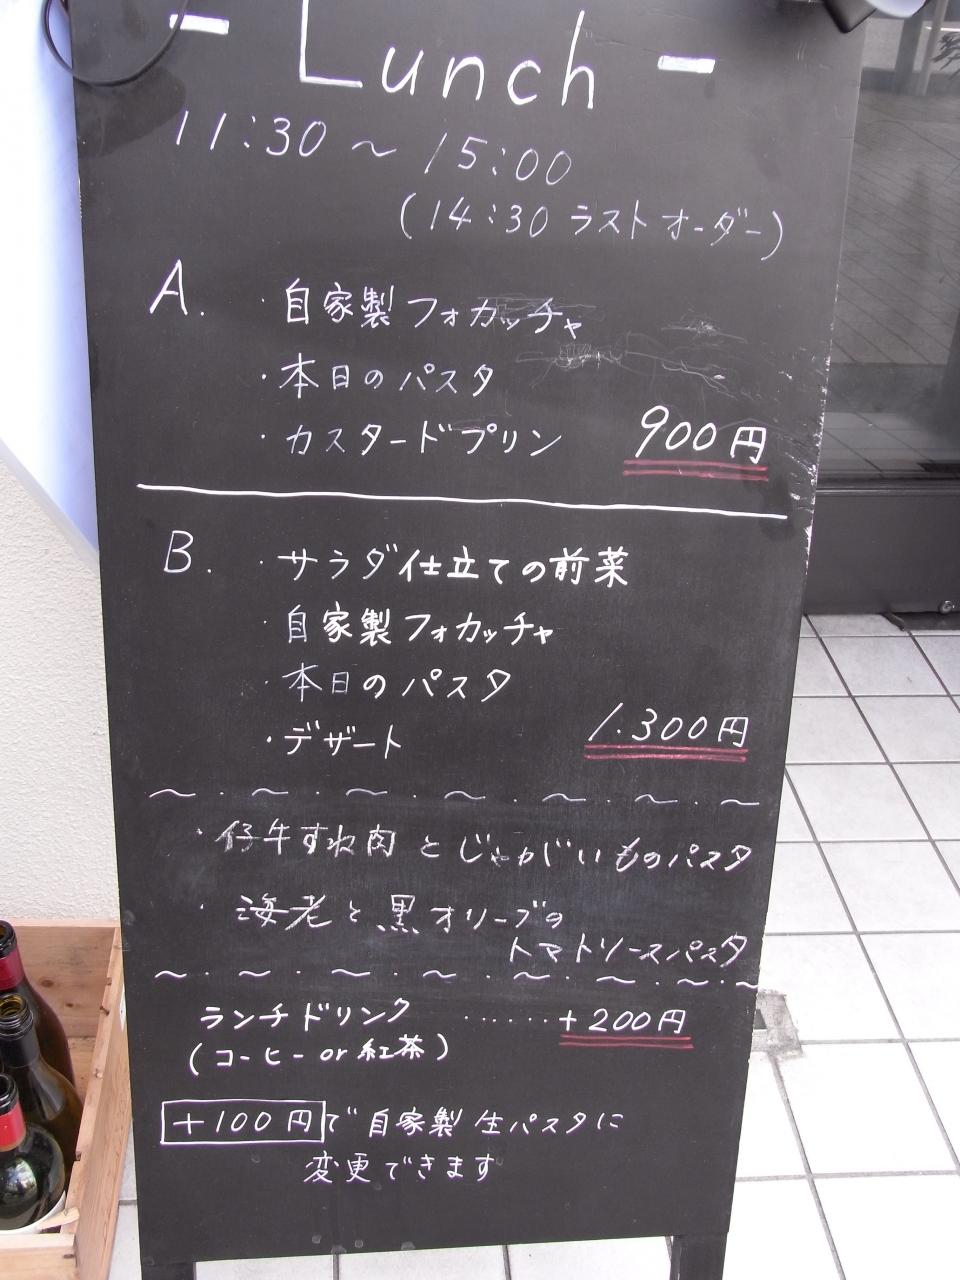 - Lunch -
11:30 ～ 15:00
(14:30 ラストオーダー)
A. ・自家製フォカッチャ
・本日のパスタ
・カスタードプリン 900円
B. ・サラダ仕立ての前菜
・自家製フォカッチャ
・本日のパスタ
・デザート 1.300円
～・～・～・～・～・～・～
・仔牛すね肉とじゃがいものパスタ
・海老と黒オリーブの
トマトソースパスタ
～・～・～・～・～・～・～
ランチドリンク ……+200円
(コーヒー or 紅茶)
+100円で自家製生パスタに
変更できます